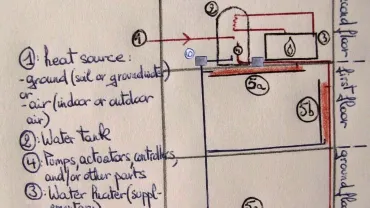 ①: heat source:
-ground (soil or groundwater)
or
-air (indoor or outdoor
air)
②: Water tank
④: Pumps, actuators, controllers,
and/or other parts
③: Water heater (suppl-
②
①
③
5a
5b
first floor